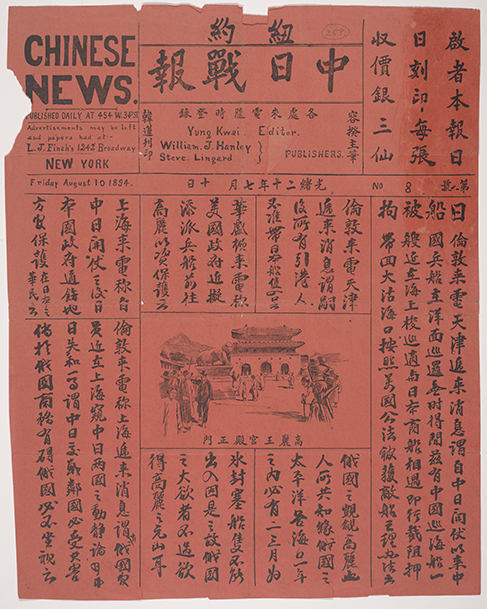 CHINESE
NEWS.
PUBLISHED DAILY AT 454 W. 34 ST
Advertisements may be left
and papers had at:-
L. J. Finch's 1242 Broadway
NEW YORK
紐約
259.
中日戰報
各處來電隨時登錄
容揆主筆
Yung Kwai. Editor.
William. J. Hanley
Steve. Lingard
PUBLISHERS.
啟者本報日
日刻印·每張
收價銀三仙
Friday August 10 1894.
光緒二十年七月十日
No 8
第八號
日船被拘
倫敦來電天津進來消息謂自中日開仗以來中
國兵船在洋面巡邏無時得閒茲有中國巡海船一
艘近在上海上梭巡適與日本商船相遇即行截阻押
帶回大沽海口按照萬國公法
倫敦來電謂天津
近來消息謂嗣
後所有引港人
不准帶日本船隻云
華盛頓來電称
美國政府近擬
添派兵船前往
高麗以資保護云
上海來電称自
中日開仗之後日
本國政府通飭地
方官保護在日本之華民云
高麗王宮殿正門
俄國之覬覦高麗也
人所共知緣俄國之
太平洋各海口一年
之內必有二三月為
冰封塞船隻不能
出入因是之故俄國
之大欲者不過欲
得高麗之山耳
倫敦來電称上海進來消息謂俄國
員近在上海窺中日兩國之動靜論
日失和一事謂中日交戰鄰國必受其害
倘於俄國商務有碍俄國必不坐視云